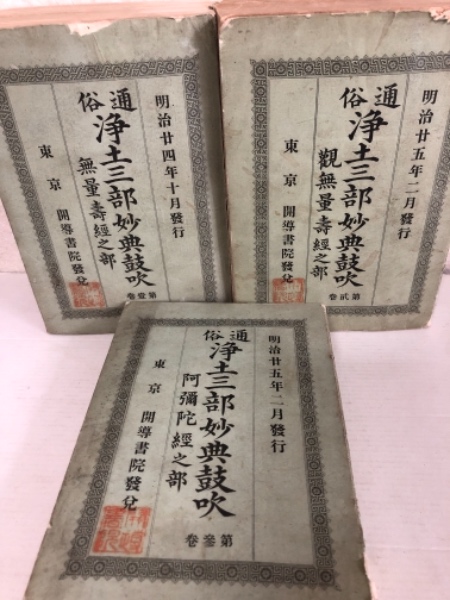 明治廿四年十月發行
通俗
淨土三部妙典鼓吹
無量壽經之部
第壹卷
東京 開導書院發兌
明治廿五年二月發行
通俗
淨土三部妙典鼓吹
觀無量壽經之部
第貳卷
東京 開導書院發兌
明治廿五年二月發行
通俗
淨土三部妙典鼓吹
阿彌陀經之部
第叄卷
東京 開導書院發兌